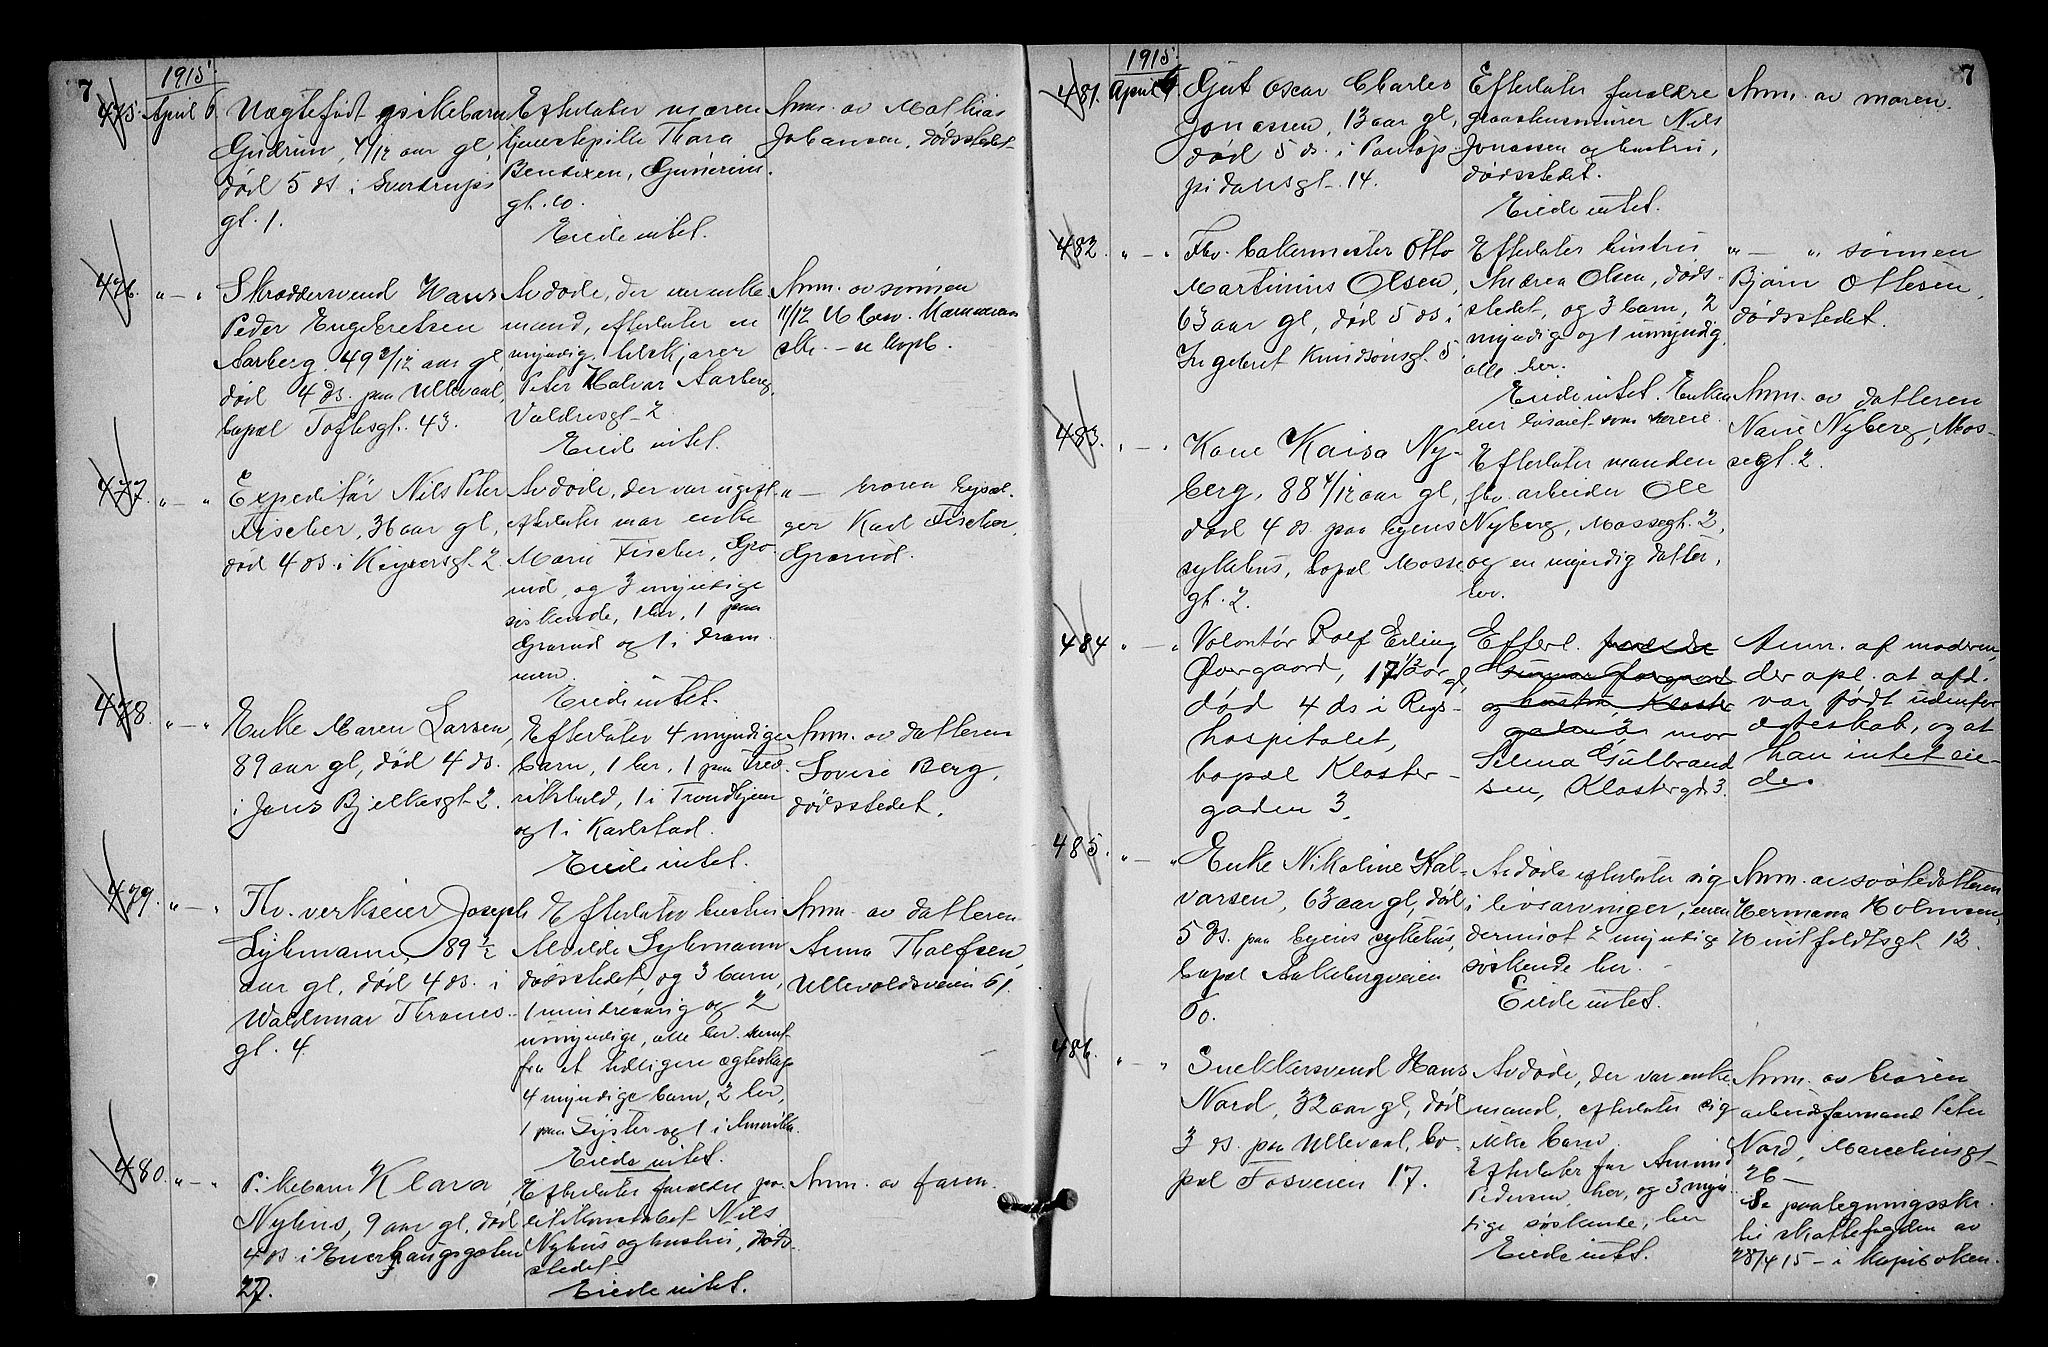 7
1915
475. April 6.
Uægtefødt pikebarn
Gudrun, 4/12 aar gl,
død 5 ds. i Sverdrups
gt. 1.
Efterlater moren
tjenestepike Thora
Bendixen,
gt. 10.
Eiede intet.
Anm. av Mathias
Johansen, dødsstedet
476. " — "
Skræddersvend Hans
Peder Engebretsen
Aarberg, 49 2/12 aar gl,
død 4 ds. paa Ullevaal,
bopæl Toftesgt. 43.
Avdøde, der var enke-
mand, efterlater en
myndig,
Peter Halvar Aarberg,
Valdresgt. 2
Eied intet.
Anm. av sønnen
11/12
477. " — "
Expeditør Nils Peter
Fischer, 36 aar gl,
død 4 ds. i Keysersgt. 2
Avdøde, der var ugift,
efterlater mor enke
Marie Fischer, Gro-
rud, og 3 myndige
søskende, 1 her, 1 paa
Grorud og 1 i Dram-
men.
Eiede intet.
" — broren bygæl-
ger Karl Fischer,
Grorud.
478. " — "
Enke Maren Larsen,
89 aar gl, død 4 ds.
i Jens Bjelkesgt. 2.
Efterlater 4 myndige
barn, 1 her, 1 paa Fred-
rikshald, 1 i Trondhjem
og 1 i Karlstad.
Eiede intet.
Anm. av datteren
Lovise Berg,
dødsstedet.
479. " — "
Fv. verkseier Joseph
Sykmann, 89 1/2
aar gl, død 4 ds. i
Waldemar Thranes-
gt. 4.
Efterlater hustru
Alvilde Sykmann
dødsstedet, og 3 barn,
1 mindreaarig og 2
umyndige, alle her. samt
fra et tidligere ægteskap
4 myndige barn, 2 her,
1 paa Lyster og 1 i Amerika.
Eiede intet.
Anm. av datteren
Anna Tholfsen,
Ullevoldsveien 61.
480. " — "
Pikebarn Klara
Nyhus, 9 aar gl, død
4 ds. i Enerhaugsgaten
27.
Efterlater forældre po-
litikonstabel Nils
Nyhus og hustru, døds-
stedet.
Eiede intet.
Anm. av faren.
7
1915
481. April 6.
Gut Oscar Charles
Jonassen, 13 aar gl,
død 5 ds. i Pontop-
pidansgt. 14.
Efterlater forældre
graastensmurer Nils
Jonassen og hustru,
dødsstedet.
Eiede intet.
Anm. av moren.
482. " — "
Fhv. bakermester Otto
Martinius Olsen,
63 aar gl, død 5 ds i
Ingebret Knudsønsgt. 5
Efterlater hustru
Andrea Olsen, døds-
stedet, og 3 barn, 2
myndig og 1 umyndig,
alle her.
Eiede intet. Enken
eier huset som særeie.
" — " sønnen
Bjørn Ottesen,
dødsstedet.
483. " — "
Kone Kaisa Ny-
berg, 88 4/12 aar gl,
død 4 ds. paa byens
sykehus, bopæl Mosse
gt. 2.
Efterlater manden
fhv. arbeider Ole
Nyberg, Mossegt. 2,
og en myndig datter,
her.
Anm. av datteren
Nanie Nyberg, Mos-
segt. 2.
484 " — "
Volontør Rolf Erling
Øvrgaard, 17 1/2 aar gl,
død 4 ds i Rigs-
hospitalet,
bopæl Kloster-
gaden 3.
Efterl. forældre
Gunnar Øvrgaard
og hustru, Kloster
gaden 3. mor
Selma Gulbrand-
sen, Klostergd. 3.
Anm. af moderen,
der opl. at afd.
var født udenfor
ægteskab, og at
han intet eie-
de.
485. " — "
Enke Nikoline Hal-
varsen, 63 aar gl, død
5 ds. paa byens sykehus,
bopæl Aakebergveien
60.
Avdøde efterlater sig
i livsarvinger, men
derimot 2 myndige
søskende her.
Eiede intet.
Anm. av søsterdatteren
Hermana Holmsen,
Huitfeldtsgt. 12.
486. " — "
Snekkersvend Hans
Nord, 32 aar gl, død
3 ds. paa Ullevaal, bo-
pæl Fosveien 17.
Avdøde, der var enke
mand, efterlater sig
ikke barn.
Efterlater far Amund
Pedersen her, og 3 myn-
dige søskende, her
Eiede intet.
Anm. av broren
arbeidsformand Peter
Nord, Marcelinsgt-
26 —
Se paalegningsskr.
til skattefogden av
28/4 15 — i kopiboken.